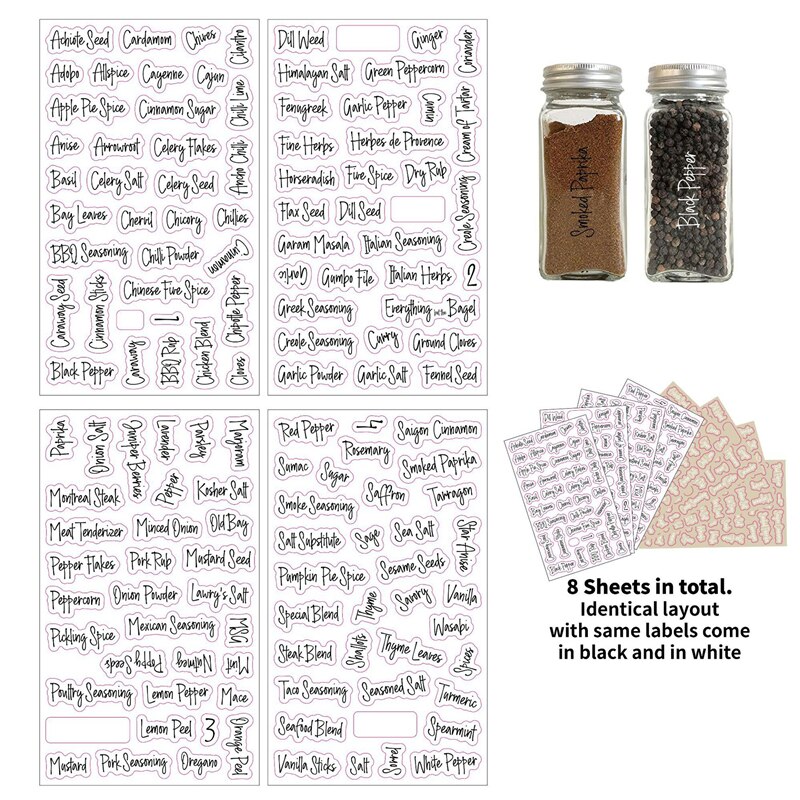 Achiote Seed
Cardamom
Chives
Cilantro
Adobo
Allspice
Cayenne
Cajun
Chili Lime
Apple Pie Spice
Cinnamon Sugar
Anise
Arrowroot
Celery Flakes
Ancho Chili
Basil
Celery Salt
Celery Seed
Bay Leaves
Chervil
Chicory
Chilies
BBQ Seasoning
Chili Powder
Cinnamon
Caraway Seed
Cinnamon Sticks
Chinese Five Spice
Chipotle Pepper
1
Caraway
BBQ Rub
Chicken Blend
Cloves
Black Pepper
Dill Weed
Ginger
Coriander
Himalayan Salt
Green Peppercorn
Fenugreek
Garlic Pepper
Cumin
Cream of Tartar
Fine Herbs
Herbes de Provence
Horseradish
Five Spice
Dry Rub
Creole Seasoning
Flax Seed
Dill Seed
Garam Masala
Italian Seasoning
Garlic
Gumbo File
Italian Herbs
2
Greek Seasoning
Everything but the Bagel
Creole Seasoning
Curry
Ground Cloves
Garlic Powder
Garlic Salt
Fennel Seed
Paprika
Onion Salt
Juniper Berries
Lavender
Parsley
Marjoram
Montreal Steak
Pepper
Kosher Salt
Meat Tenderizer
Minced Onion
Old Bay
Pepper Flakes
Pork Rub
Mustard Seed
Peppercorn
Onion Powder
Lawry's Salt
Pickling Spice
Mexican Seasoning
MSG
Poppy Seeds
Nutmeg
Mint
Poultry Seasoning
Lemon Pepper
Mace
Lemon Peel
3
Orange Peel
Mustard
Pork Seasoning
Oregano
Red Pepper
4
Saigon Cinnamon
Rosemary
Sumac
Sugar
Smoked Paprika
Smoke Seasoning
Saffron
Tarragon
Salt Substitute
Sage
Sea Salt
Star Anise
Pumpkin Pie Spice
Sesame Seeds
Special Blend
Thyme
Savory
Vanilla
Wasabi
Steak Blend
Shallots
Thyme Leaves
Spices
Taco Seasoning
Seasoned Salt
Turmeric
Seafood Blend
Spearmint
Vanilla Sticks
Salt
Sorrel
White Pepper
Smoked Paprika
Black Pepper
8 Sheets in total.
Identical layout
with same labels come
in black and in white